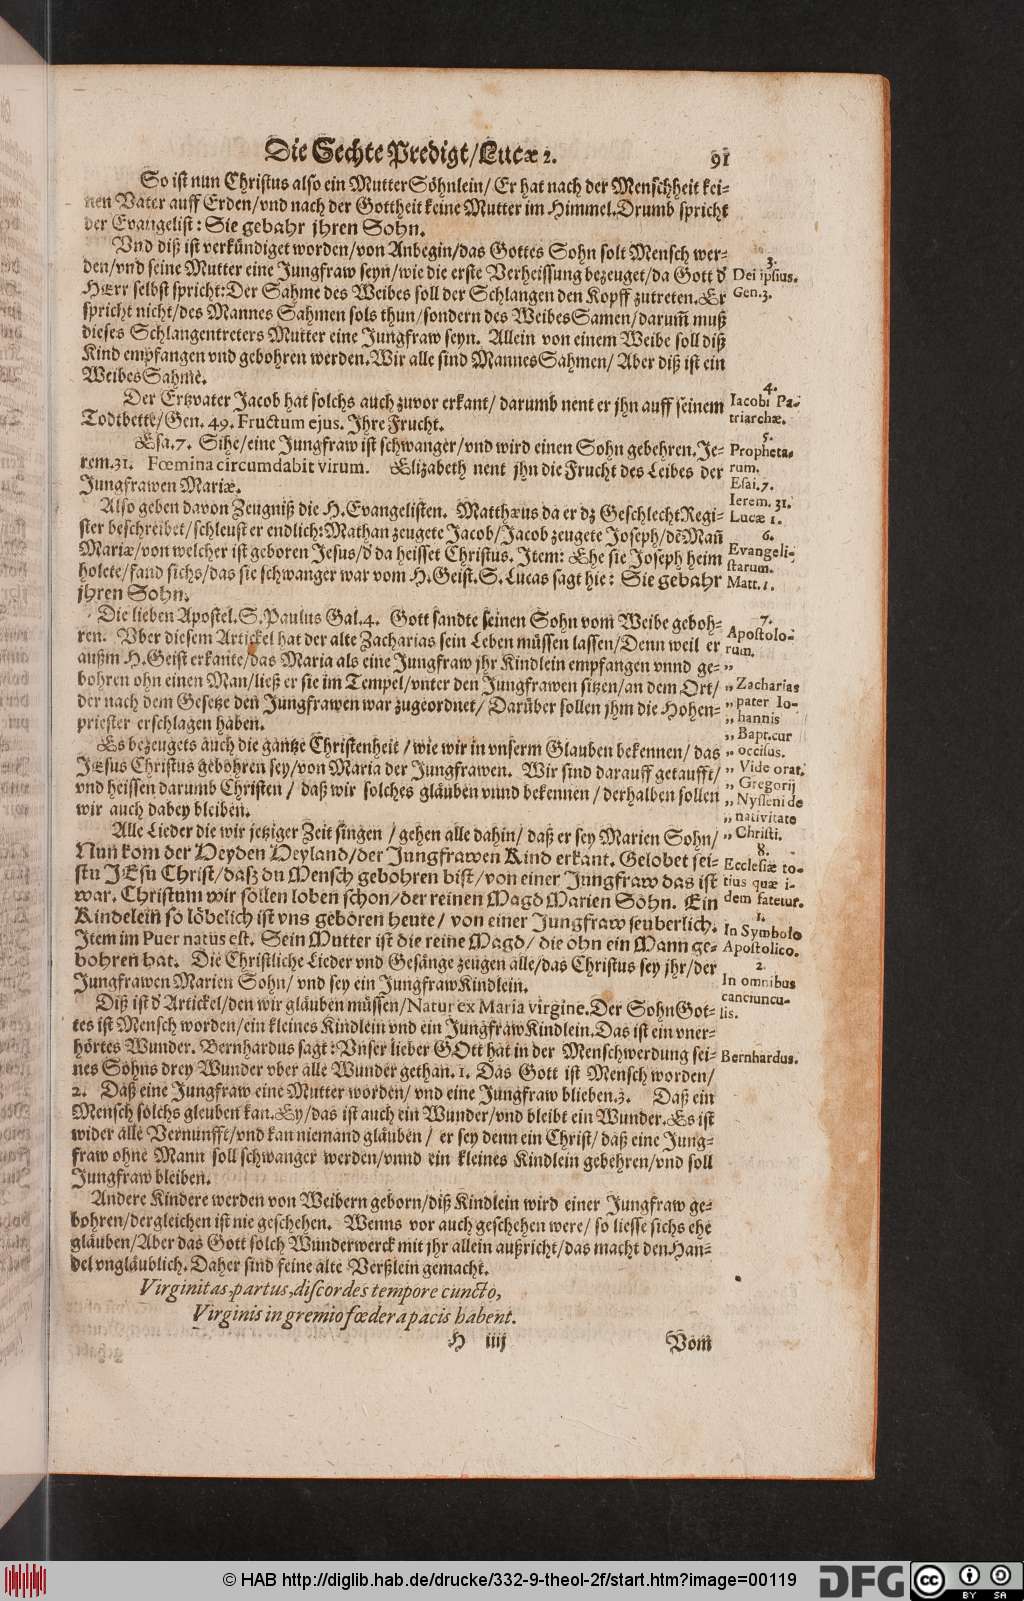 Die Sechte Predigt/Lucæ 2. 91
So ist nun Christus also ein Mutter Söhnlein/ Er hat nach der Menschheit kei-
nen Vater auff Erden/vnd nach der Gottheit keine Mutter im Himmel. Drumb spricht
der Evangelist: Sie gebahr jhren Sohn.
Vnd diß ist verkündiget worden/von Anbegin/das Gottes Sohn solt Mensch wer-
den/vnd seine Mutter eine Jungfraw seyn/wie die erste Verheissung bezeuget/da Gott d'
HErr selbst spricht: Der Sahme des Weibes soll der Schlangen den Kopff zutreten. Er
spricht nicht/des Mannes Sahmen sols thun/sondern des Weibes Samen/darum̃ muß
dieses Schlangentreters Mutter eine Jungfraw seyn. Allein von einem Weibe soll diß
Kind empfangen vnd gebohren werden. Wir alle sind Mannes Sahmen/ Aber diß ist ein
Weibes Sahme.
Der Ertzvater Jacob hat solchs auch zuvor erkant/ darumb nent er jhn auff seinem
Todtbette/Gen. 49. Fructum ejus. Jhre Frucht.
Esa. 7. Sihe/eine Jungfraw ist schwanger/vnd wird einen Sohn gebehren. Je-
rem. 31. Fœmina circumdabit virum. Elizabeth nent jhn die Frucht des Leibes der
Jungfrawen Mariæ.
Also geben davon Zeugniß die H. Evangelisten. Matthæus da er dz Geschlecht Regi-
ster beschreibet/schleust er endlich: Mathan zeugete Jacob/Jacob zeugete Joseph/dẽ Mañ
Mariæ/von welcher ist geboren Jesus/d' da heisset Christus. Item: Ehe sie Joseph heim
holete/fand sichs/das sie schwanger war vom H. Geist. S. Lucas sagt hie: Sie gebahr
jhren Sohn.
Die lieben Apostel. S. Paulus Gal. 4. Gott sandte seinen Sohn vom Weibe geboh-
ren. Vber diesem Artickel hat der alte Zacharias sein Leben müssen lassen/Denn weil er
außm H. Geist erkante/das Maria als eine Jungfraw jhr Kindlein empfangen vnnd ge-
bohren ohn einen Man/ließ er sie im Tempel/vnter den Jungfrawen sitzen/an dem Ort/
der nach dem Gesetze den Jungfrawen war zugeordnet/ Darüber sollen jhm die Hohen-
priester erschlagen haben.
Es bezeugets auch die gantze Christenheit/wie wir in vnserm Glauben bekennen/ das
JEsus Christus gebohren sey/von Maria der Jungfrawen. Wir sind darauff getaufft/
vnd heissen darumb Christen/ daß wir solches gläuben vnnd bekennen/derhalben sollen
wir auch dabey bleiben.
Alle Lieder die wir jetziger Zeit singen/gehen alle dahin/ daß er sey Marien Sohn/
Nun kom der Heyden Heyland/der Jungfrawen Kind erkant. Gelobet sei-
stu JEsu Christ/dasz du Mensch gebohren bist/von einer Jungfraw das ist
war. Christum wir sollen loben schon/der reinen Magd Marien Sohn. Ein
Kindelein so löbelich ist vns geboren heute/ von einer Jungfraw seuberlich.
Item im Puer natus est. Sein Mutter ist die reine Magd/ die ohn ein Mann ge-
bohren hat. Die Christliche Lieder vnd Gesänge zeugen alle/das Christus sey jhr/der
Jungfrawen Marien Sohn/ vnd sey ein Jungfraw Kindlein.
Diß ist d' Artickel/den wir gläuben müssen/Natur ex Maria virgine. Der Sohn Got-
tes ist Mensch worden/ein kleines Kindlein vnd ein Jungfraw Kindlein. Das ist ein vner-
hörtes Wunder. Bernhardus sagt: Vnser lieber GOtt hat in der Menschwerdung sei-
nes Sohns drey Wunder vber alle Wunder gethan. 1. Das Gott ist Mensch worden/
2. Daß eine Jungfraw eine Mutter worden/ vnd eine Jungfraw blieben. 3. Daß ein
Mensch solchs gleuben kan. Ey/das ist auch ein Wunder/vnd bleibt ein Wunder. Es ist
wider alle Vernunfft/vnd kan niemand gläuben/ er sey denn ein Christ/ daß eine Jung-
fraw ohne Mann soll schwanger werden/vnnd ein kleines Kindlein gebehren/vnd soll
Jungfraw bleiben.
Andere Kindere werden von Weibern geborn/diß Kindlein wird einer Jungfraw ge-
bohren/dergleichen ist nie geschehen. Wenns vor auch geschehen were/ so liesse sichs ehe
gläuben/Aber das Gott solch Wunderwerck mit jhr allein außricht/das macht den Han-
del vngläublich. Daher sind feine alte Verßlein gemacht.
Virginitas, partus, discordes tempore cuncto,
Virginis in gremio fœdera pacis habent.
H iiij Vom̃
3.
Dei ipsius.
Gen. 3.
4.
Iacobi Pa-
triarchæ.
5.
Propheta-
rum.
Esai. 7.
Ierem. 31.
Lucæ 1.
6.
Evangeli-
starum.
Matt. 1.
7.
Apostolo-
rum.
„
„ Zacharias
„ pater Io-
„ hannis
„ Bapt. cur
„ occisus.
„ Vide orat.
„ Gregorij
„ Nysseni de
„ nativitate
„ Christi.
8.
Ecclesiæ to-
tius quæ i-
dem fatetur.
1.
In Symbolo
Apostolico.
2.
In omnibus
canciuncu-
lis.
Bernhardus.
© HAB http://diglib.hab.de/drucke/332-9-theol-2f/start.htm?image=00119
DFG
cc BY SA